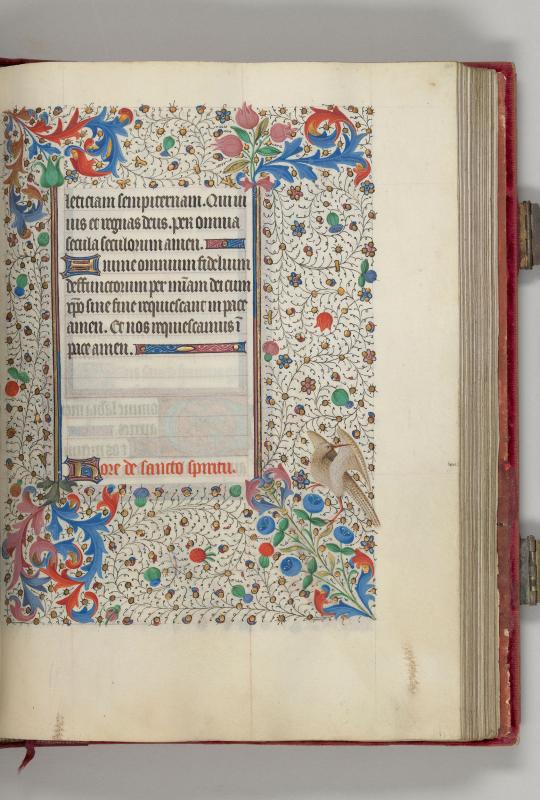 leticiam sempiternam. Qui ui
uis et regnas deus. per omnia
secula seculorum amen.
Anime omnium fidelium
deffunctorum per mīam dei cum
xp̄o sine fine requiescant in pace
amen. Et nos requiescamus ī
pace amen.
Hore de sancto spiritu.